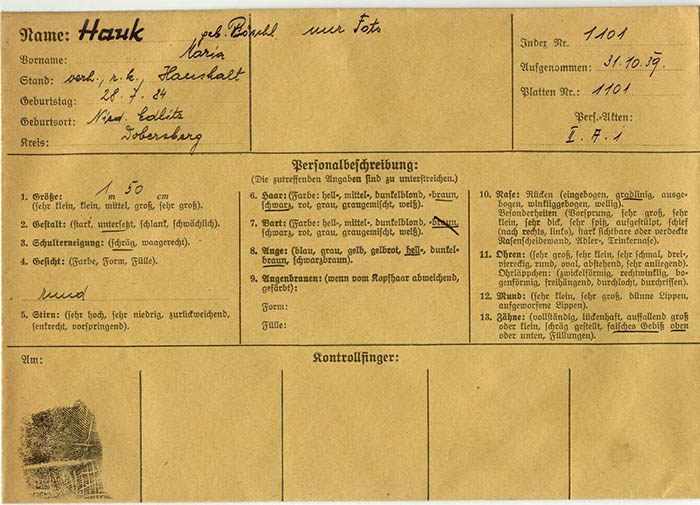 Name: Hauk geb. nur Foto
Vorname: Maria
Stand: verh., r. k., Haushalt
Geburtstag: 28. 7. 84
Geburtsort: Nied. Edlitz
Kreis: Dobersberg
Index Nr. 1101
Aufgenommen: 31. 10. 39.
Platten Nr.: 1101
Pers.-Akten:
II. A. 1
Personalbeschreibung:
(Die zutreffenden Angaben sind zu unterstreichen.)
1. Größe: 1 m 50 cm
(sehr klein, klein, mittel, groß, sehr groß).
2. Gestalt: (stark, untersetzt, schlank, schwächlich).
3. Schulterneigung: (schräg, waagerecht).
4. Gesicht: (Farbe, Form, Fülle).
rund
5. Stirn: (sehr hoch, sehr niedrig, zurückweichend,
senkrecht, vorspringend).
6. Haar: (Farbe: hell-, mittel-, dunkelblond, -braun,
schwarz, rot, grau, graugemischt, weiß).
7. Bart: (Farbe: hell-, mittel-, dunkelblond, -braun,
schwarz, rot, grau, graugemischt, weiß).
8. Auge: (blau, grau, gelb, gelbrot, hell-, dunkel-
braun, schwarzbraun).
9. Augenbrauen: (wenn vom Kopfhaar abweichend,
gefärbt):
Form:
Fülle:
10. Nase: Rücken (eingebogen, gradlinig, ausge-
bogen, winkliggebogen, wellig).
Besonderheiten (Vorsprung, sehr groß, sehr
klein, sehr dick, sehr spitz, aufgestülpt, schief
(nach rechts, links), stark sichtbare oder verdeckte
Nasenscheidewand, Adler-, Trinkernase).
11. Ohren: (sehr groß, sehr klein, sehr schmal, drei-,
viereckig, rund, oval, abstehend, sehr anliegend).
Ohrläppchen: (zwickelförmig, rechtwinklig, bo-
genförmig, freihängend, durchlocht, durchrissen).
12. Mund: (sehr klein, sehr groß, dünne Lippen,
aufgeworfene Lippen).
13. Zähne: (vollständig, lückenhaft, auffallend groß
oder klein, schräg gestellt, falsches Gebiß oben
oder unten, Füllungen).
Am:
Kontrollfinger: